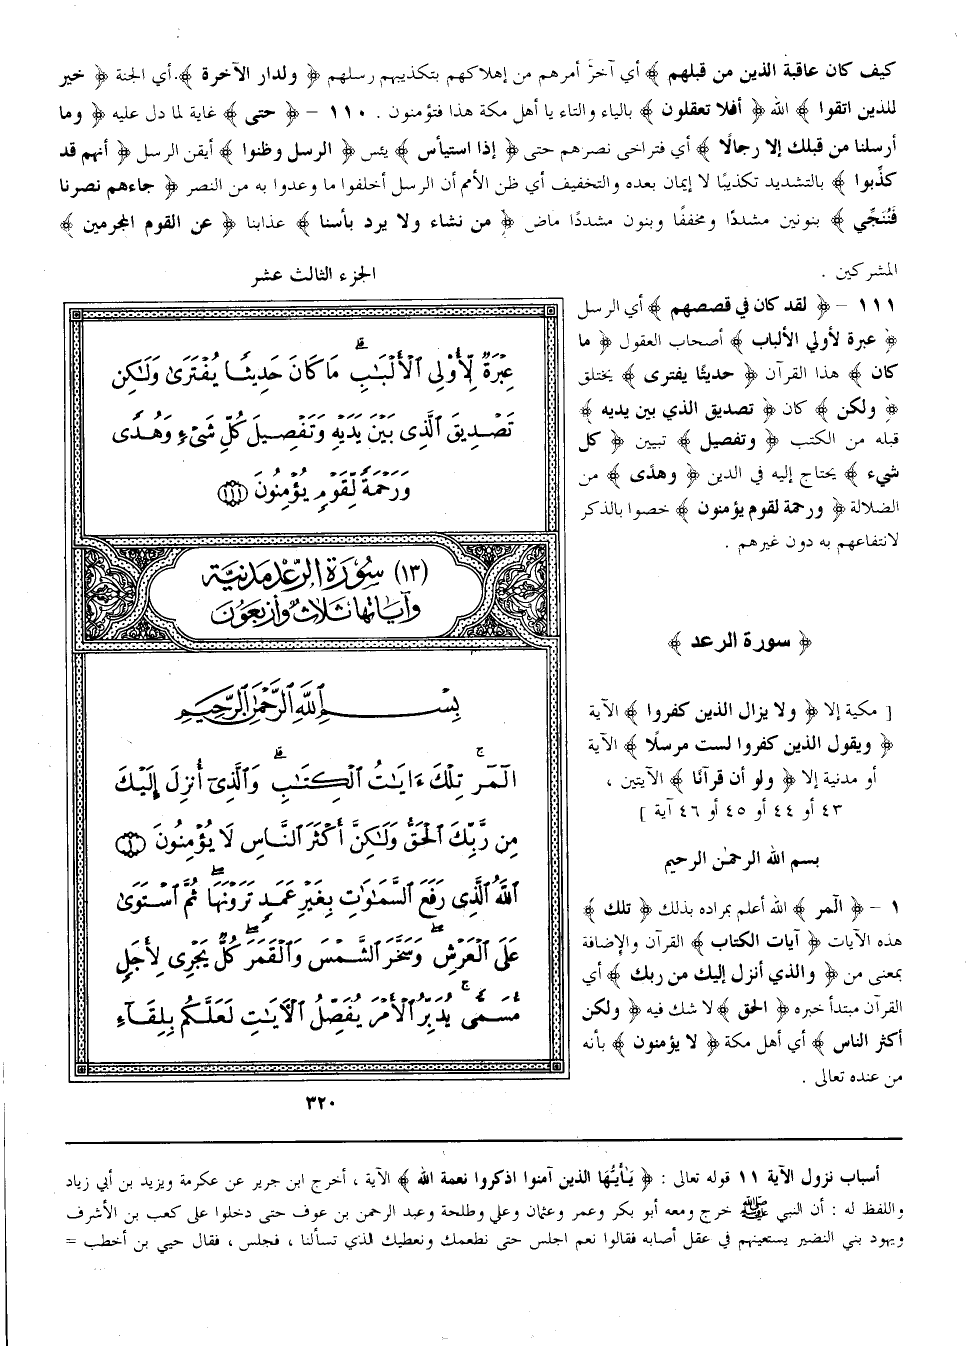 كيف كان عاقبة الذين من قبلهم ﴾ أي آخرَ أمرهم من إهلاكهم بتكذيبهم رسلهم ﴿ ولدار الآخرة ﴾ أي الجنة ﴿ خير
للذين اتقوا ﴾ الله ﴿ أفلا تعقلون ﴾ بالياء والتاء يا أهل مكة هذا فتؤمنون . ١١٠ – ﴿ حتى ﴾ غاية لما دل عليه ﴿ وما
أرسلنا من قبلك إلا رجالًا ﴾ أي فتراخى نصرهم حتى ﴿ إذا استيأس ﴾ يئس ﴿ الرسل وظنوا ﴾ أيقن الرسل ﴿ أنهم قد
كذِّبوا ﴾ بالتشديد تكذيبًا لا إيمان بعده والتخفيف أي ظن الأمم أن الرسل أخلفوا ما وعدوا به من النصر ﴿ جاءهم نصرنا
فَنُنَجِّي ﴾ بنونين مشددًا ومخففًا وبنون مشددًا ماض ﴿ من نشاء ولا يرد بأسنا ﴾ عذابنا ﴿ عن القوم المجرمين ﴾
المشركين .
١١١ – ﴿ لقد كان في قصصهم ﴾ أي الرسل
﴿ عبرة لأولي الألباب ﴾ أصحاب العقول ﴿ ما
كان ﴾ هذا القرآن ﴿ حديثًا يفترى ﴾ يختلق
﴿ ولكن ﴾ كان ﴿ تصديق الذي بين يديه ﴾
قبله من الكتب ﴿ وتفصيل ﴾ تبيين ﴿ كل
شيء ﴾ يحتاج إليه في الدين ﴿ وهدًى ﴾ من
الضلالة ﴿ ورحمة لقوم يؤمنون ﴾ خصوا بالذكر
لانتفاعهم به دون غيرهم .
﴿ سورة الرعد ﴾
[ مكية إلا ﴿ ولا يزال الذين كفروا ﴾ الآية
﴿ ويقول الذين كفروا لست مرسلًا ﴾ الآية
أو مدنية إلا ﴿ ولو أن قرآنًا ﴾ الآيتين ،
٤٣ أو ٤٤ أو ٤٥ أو ٤٦ آية ]
بسم الله الرحمٰن الرحيم
١ – ﴿ الٓمر ﴾ الله أعلم بمراده بذلك ﴿ تلك ﴾
هذه الآيات ﴿ آيات الكتاب ﴾ القرآن والإضافة
بمعنى من ﴿ والذي أنزل إليك من ربك ﴾ أي
القرآن مبتدأ خبره ﴿ الحق ﴾ لا شك فيه ﴿ ولكن
أكثر الناس ﴾ أي أهل مكة ﴿ لا يؤمنون ﴾ بأنه
من عنده تعالى .
الجزء الثالث عشر
عِبۡرَةٞ لِّأُوْلِي ٱلۡأَلۡبَٰبِۗ مَا كَانَ حَدِيثٗا يُفۡتَرَىٰ وَلَٰكِن
تَصۡدِيقَ ٱلَّذِي بَيۡنَ يَدَيۡهِ وَتَفۡصِيلَ كُلِّ شَيۡءٖ وَهُدٗى
وَرَحۡمَةٗ لِّقَوۡمٖ يُؤۡمِنُونَ ١١١
(١٣) سُورَةُ الرَّعۡدِ مَدَنِيَّة
وَآيَاتُهَا ثَلَاثٌ وَأَرۡبَعُونَ
بِسۡمِ ٱللَّهِ ٱلرَّحۡمَٰنِ ٱلرَّحِيمِ
الٓمٓرۚ تِلۡكَ ءَايَٰتُ ٱلۡكِتَٰبِۗ وَٱلَّذِيٓ أُنزِلَ إِلَيۡكَ
مِن رَّبِّكَ ٱلۡحَقُّ وَلَٰكِنَّ أَكۡثَرَ ٱلنَّاسِ لَا يُؤۡمِنُونَ ١
ٱللَّهُ ٱلَّذِي رَفَعَ ٱلسَّمَٰوَٰتِ بِغَيۡرِ عَمَدٖ تَرَوۡنَهَاۖ ثُمَّ ٱسۡتَوَىٰ
عَلَى ٱلۡعَرۡشِۖ وَسَخَّرَ ٱلشَّمۡسَ وَٱلۡقَمَرَۖ كُلّٞ يَجۡرِي لِأَجَلٖ
مُّسَمّٗىۚ يُدَبِّرُ ٱلۡأَمۡرَ يُفَصِّلُ ٱلۡأٓيَٰتِ لَعَلَّكُم بِلِقَآءِ
٣٢٠
أسباب نزول الآية ١١ قوله تعالى : ﴿ يَٰأَيُّهَا الذين آمنوا اذكروا نعمة الله ﴾ الآية ، أخرج ابن جرير عن عكرمة ويزيد بن أبي زياد
واللفظ له : أن النبي ﷺ خرج ومعه أبو بكر وعمر وعثمان وعلي وطلحة وعبد الرحمن بن عوف حتى دخلوا على كعب بن الأشرف
ويهود بني النضير يستعينهم في عقل أصابه فقالوا نعم اجلس حتى نطعمك ونعطيك الذي تسألنا ، فجلس ، فقال حيي بن أخطب =